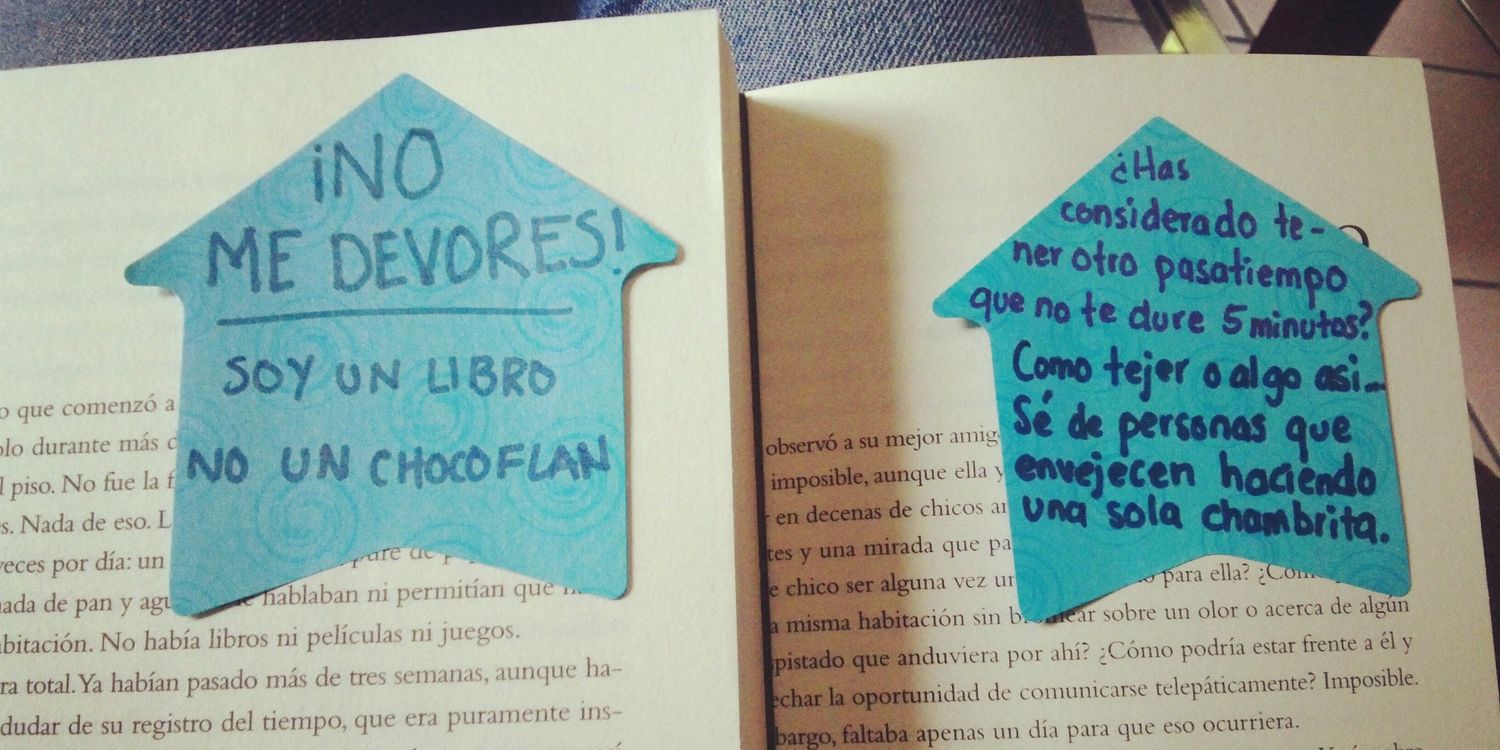 ¡NO
ME DEVORES!
SOY UN LIBRO
NO UN CHOCOFLAN
o que comenzó a
olo durante más
l piso. No fue la f
s. Nada de eso. L
veces por día: un
nada de pan y agu hablaban ni permitían que
abitación. No había libros ni películas ni juegos.
ra total. Ya habían pasado más de tres semanas, aunque ha-
dudar de su registro del tiempo, que era puramente ins-
¿Has
considerado te-
ner otro pasatiempo
que no te dure 5 minutos?
Como tejer o algo asi...
Sé de personas que
envejecen haciendo
una sola chambrita.
observó a su mejor amig
imposible, aunque ella y
en decenas de chicos
tes y una mirada que pa
e chico ser alguna vez para ella?
a misma habitación sin sobre un olor o acerca de algún
pistado que anduviera por ahí? ¿Cómo podría estar frente a él y
echar la oportunidad de comunicarse telepáticamente? Imposible.
bargo, faltaba apenas un día para que eso ocurriera.